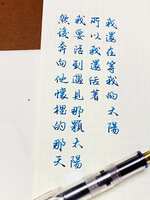 我還在等我的太陽
所以我還活著
我要活到遇見那顆太陽
然後奔向他懷裡的那天